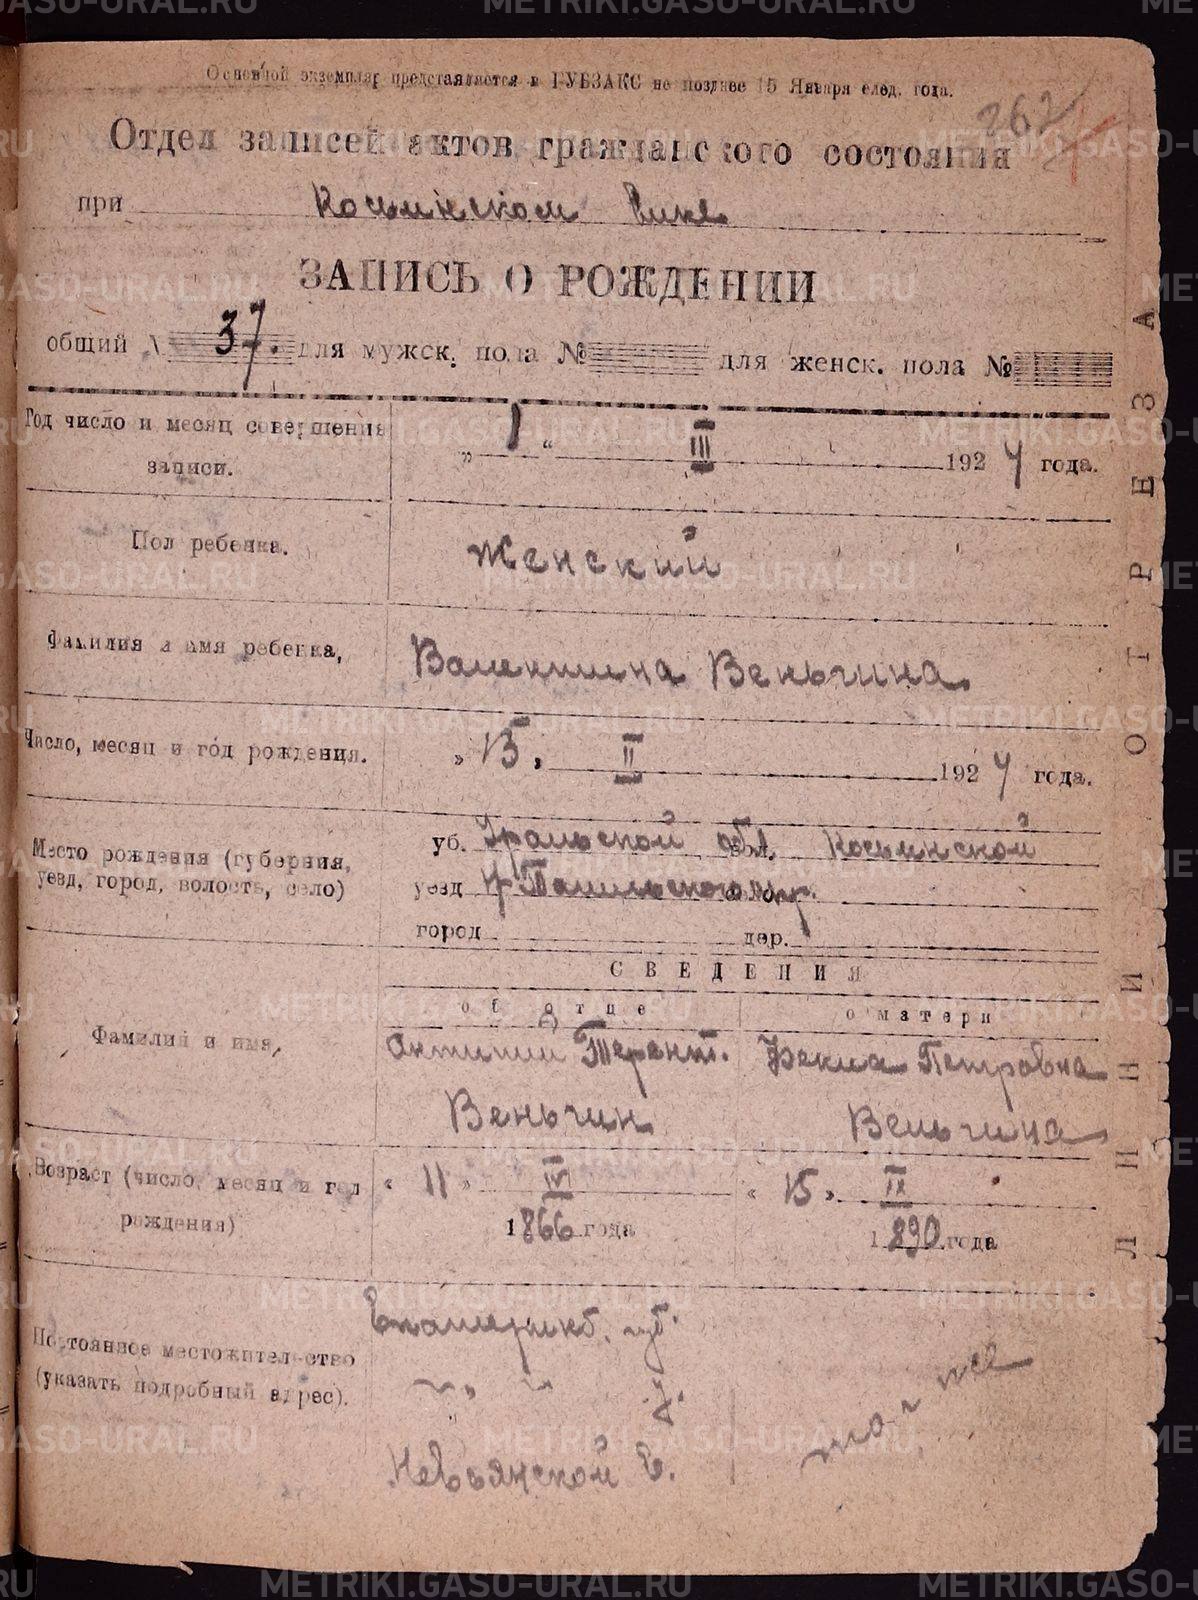 Основной экземпляр представляется в ГУБЗАКС не позднее 15 Января след. года.
262
Отдел записей актов гражданского состояния
при Косьинском Вике
ЗАПИСЬ О РОЖДЕНИИ
общий № 37. для мужск. пола № для женск. пола №
Год число и месяц совершения записи.
„ 1 “ III 1924 года.
Пол ребенка.
Женский
Фамилия и имя ребенка,
Валентина Веньгина
Число, месяц и год рождения.
„ 15, II 1924 года.
Место рождения (губерния, уезд, город, волость, село)
уб. Уральской обл. Косьинской
уезд Н Тагильского окр.
город дер.
СВЕДЕНИЯ
об отце
о матери
Фамилия и имя,
Антипин Терент. Фекла Петровна
Веньгин Веньгина
Возраст (число, месяц и год рождения)
« 11 » IV « 15 » IX
1866 года 1890 года
Постоянное местожительство (указать подробный адрес).
Екатеринб. губ.
" " у.
Невьянской в.
то же
ЛИНИЯ ОТРЕЗА
METRIKI.GASO-URAL.RU